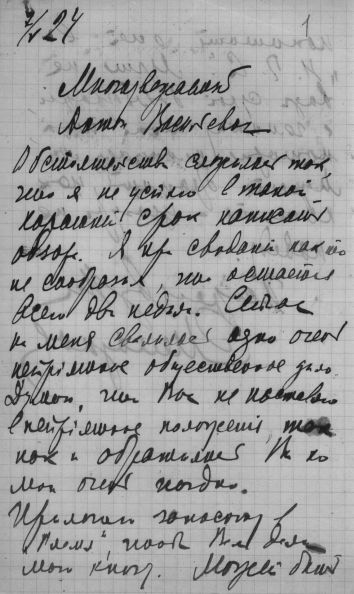 7/V 24
1
Многоуважаемый
Антон Васильевич
Обстоятельства сложились так,
что я не успею в такой
короткий срок написать
обзор. Я при свидании как-то
не сообразил, что остается
всего две недели. Сейчас
на меня свалилось одно очень
неприятное общественное дело.
Думаю, что Вас не поставлю
в неприятное положение, так
как и обратились Вы ко
мне очень поздно.
записочку в
"Время", чтоб Вам дали
мою книгу. Может быть